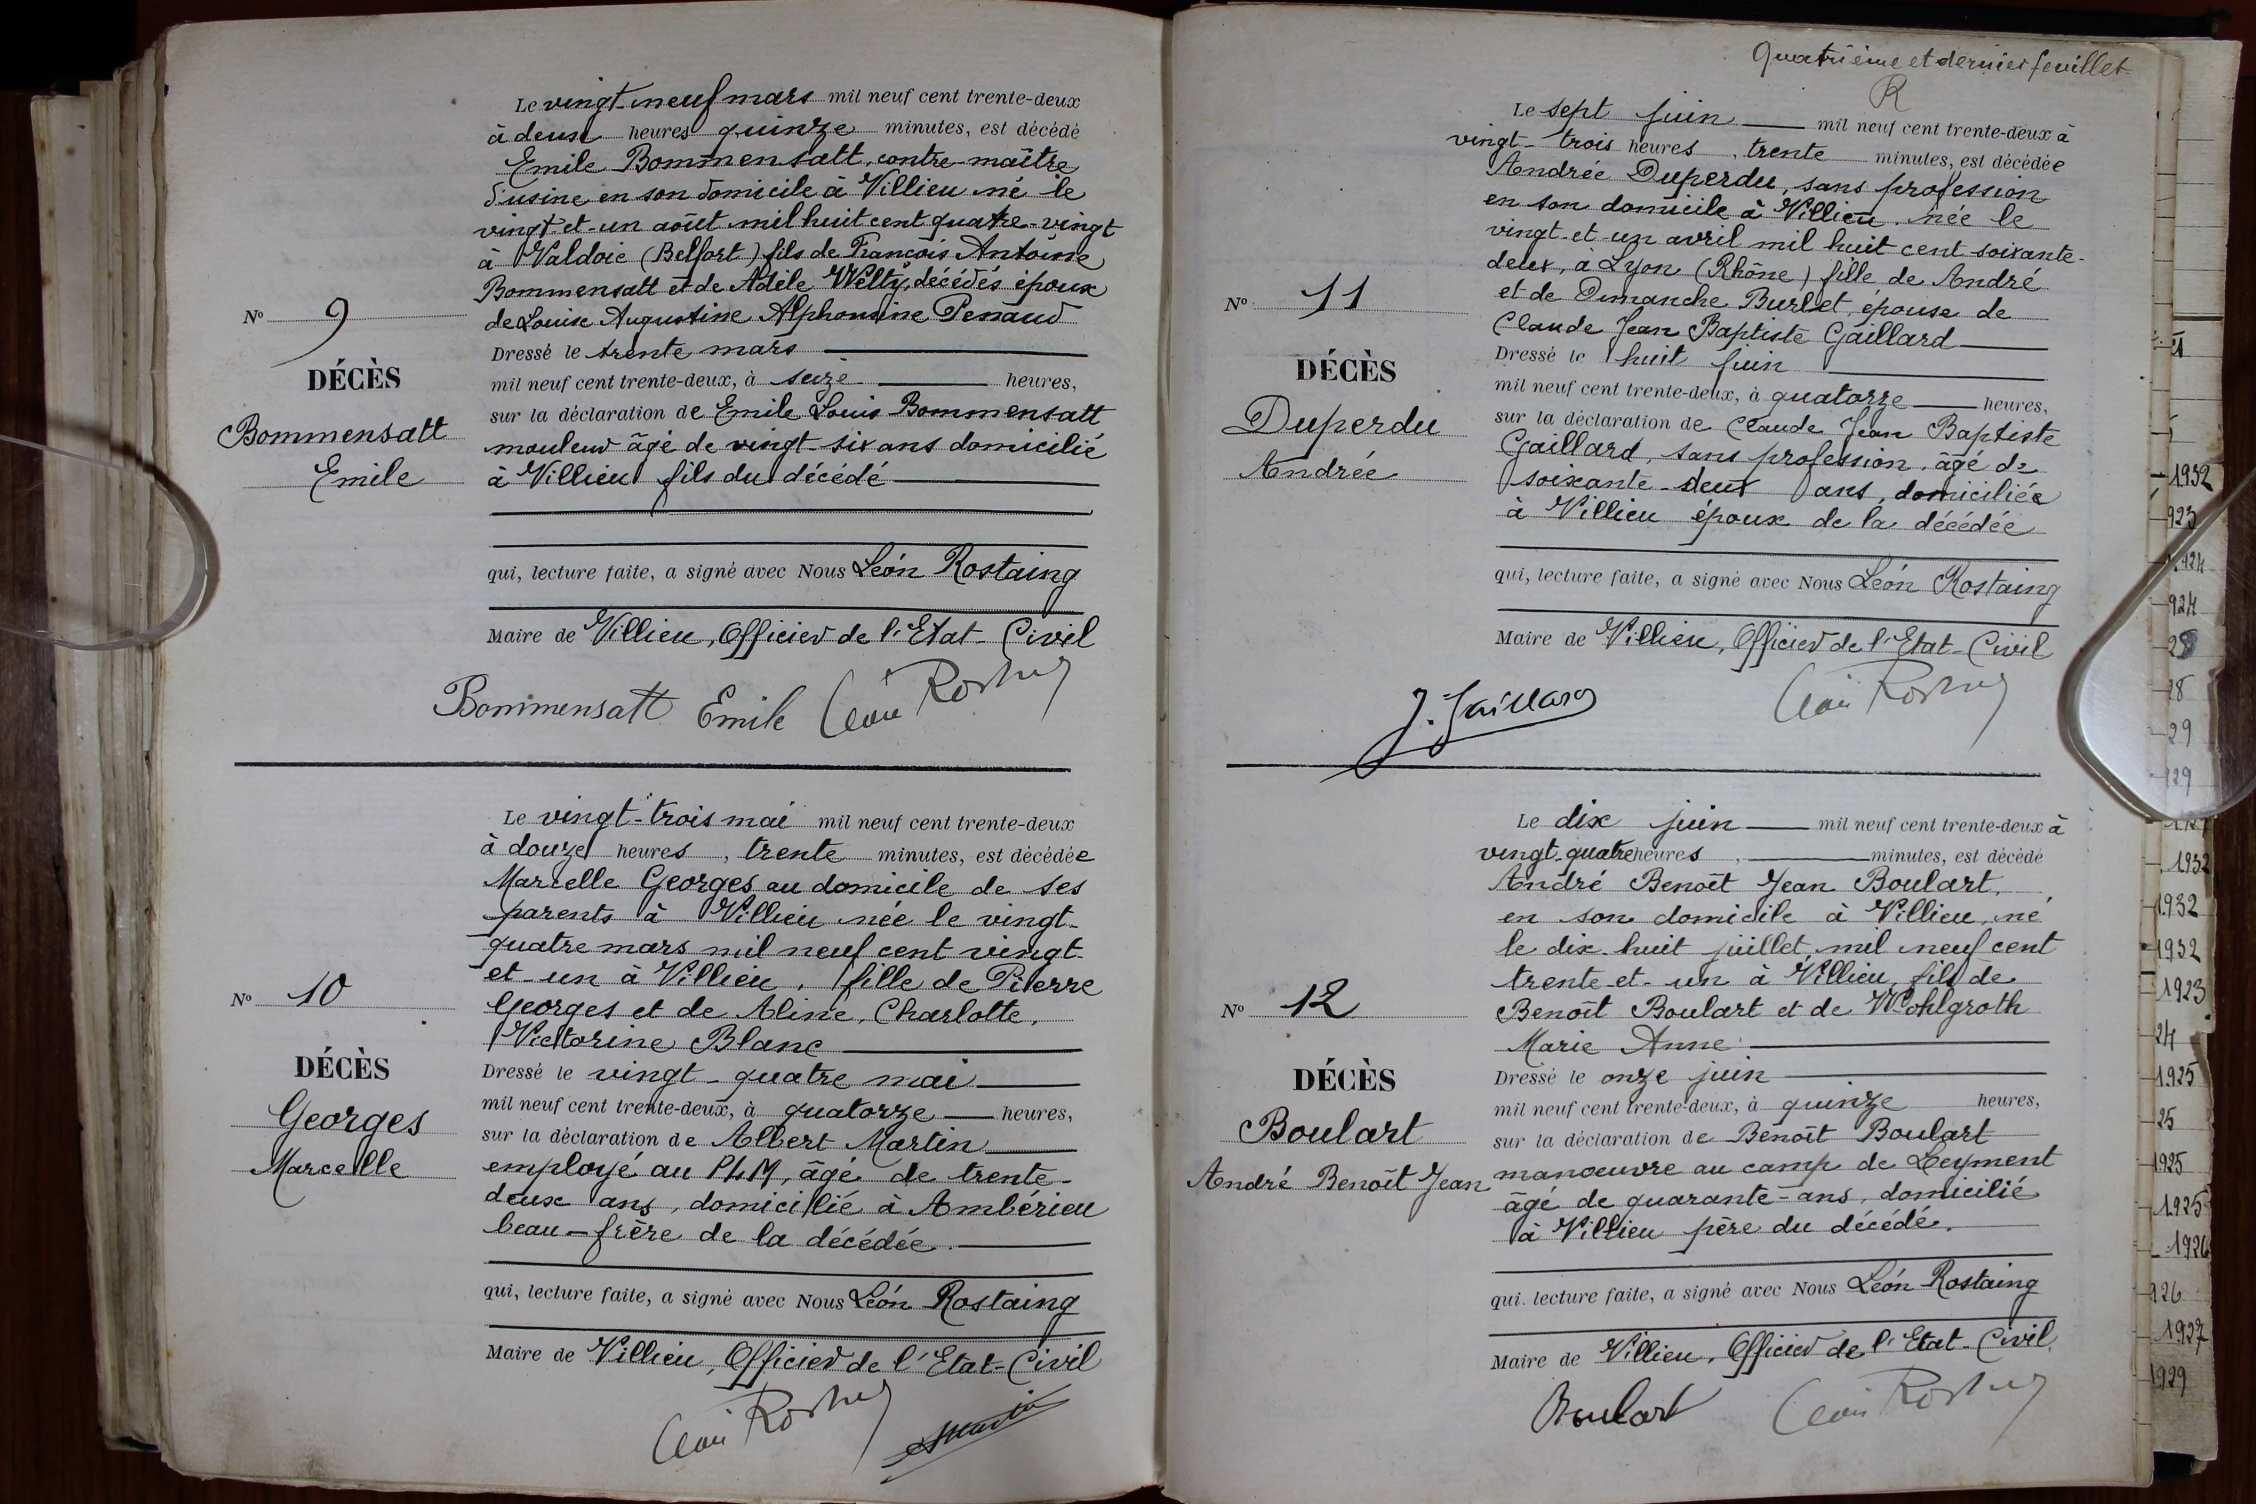 Le vingt-neuf mars mil neuf cent trente-deux
à deux heures quinze minutes, est décédé
Emile Bommensatt, contre-maître
d'usine en son domicile à Villieu né le
vingt-et-un août mil huit cent quatre-vingt
à Valdoie (Belfort) fils de François Antoine
Bommensatt et de Adèle Welty, décédés époux
de Louise Augustine Alphonsine Penaud
Dressé le trente mars
mil neuf cent trente-deux, à seize heures,
sur la déclaration de Emile Louis Bommensatt
mouleur âgé de vingt-six ans domicilié
à Villieu fils du décédé
qui, lecture faite, a signé avec Nous Léon Rostaing
Maire de Villieu, Officier de l'Etat-Civil
Nº 9
DÉCÈS
Bommensatt
Emile
Bommensatt Emile Léon Rostaing
Le vingt-trois mai mil neuf cent trente-deux
à douze heures, trente minutes, est décédée
Marcelle Georges au domicile de ses
parents à Villieu née le vingt-
quatre mars mil neuf cent vingt-
et-un à Villieu, fille de Pierre
Georges et de Aline, Charlotte,
Victorine Blanc
Dressé le vingt-quatre mai
mil neuf cent trente-deux, à quatorze heures,
sur la déclaration de Albert Martin
employé au PLM, âgé de trente-
deux ans, domicilié à Ambérieu
beau-frère de la décédée.
qui, lecture faite, a signé avec Nous Léon Rostaing
Maire de Villieu, Officier de l'Etat-Civil
Nº 10
DÉCÈS
Georges
Marcelle
Léon Rostaing
Martin
Quatrième et dernier feuillet
R
Le sept juin mil neuf cent trente-deux à
vingt-trois heures, trente minutes, est décédée
Andrée Duperdu, sans profession
en son domicile à Villieu, née le
vingt-et-un avril mil huit cent soixante-
deux, à Lyon (Rhône) fille de André
et de Dimanche Burlet, épouse de
Claude Jean Baptiste Gaillard
Dressé le huit juin
mil neuf cent trente-deux, à quatorze heures,
sur la déclaration de Claude Jean Baptiste
Gaillard, sans profession, âgé de
soixante-deux ans, domiciliée
à Villieu époux de la décédée
qui, lecture faite, a signé avec Nous Léon Rostaing
Maire de Villieu, Officier de l'Etat-Civil
Nº 11
DÉCÈS
Duperdu
Andrée
J. Gaillard
Léon Rostaing
Le dix juin mil neuf cent trente-deux à
vingt-quatre heures, minutes, est décédé
André Benoît Jean Boulart,
en son domicile à Villieu, né
le dix-huit juillet mil neuf cent
trente-et-un à Villieu, fils de
Benoît Boulart et de Wohlgroth
Marie Anne
Dressé le onze juin
mil neuf cent trente-deux, à quinze heures,
sur la déclaration de Benoît Boulart
manœuvre au camp de Leyment
âgé de quarante-ans, domicilié
à Villieu père du décédé.
qui, lecture faite, a signé avec Nous Léon Rostaing
Maire de Villieu, Officier de l'Etat-Civil.
Nº 12
DÉCÈS
Boulart
André Benoît Jean
Boulart
Léon Rostaing
1932
923
1924
924
28
29
129
1932
1932
1932
1923
24
1925
25
1925
1925
1926
926
1927
1929